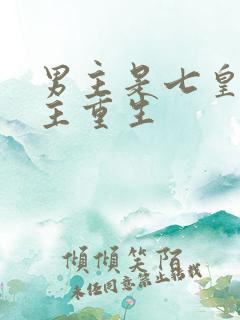 男主是七皇
主重生
倾倾笑陌
未经同意禁止转载